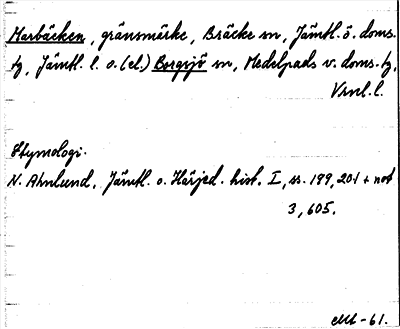 Marbäcken, gränsmärke, Bräcke sn, Jämtl. ö. doms.
tg, Jämtl. l. o. (el.) Borgsjö sn, Medelpads v. doms.tg,
Vrnl.l.
Etymologi.
N. Ahnlund, Jämtl. o. Härjed. hist. I, ss. 199, 201 + not
3, 605.
-61.